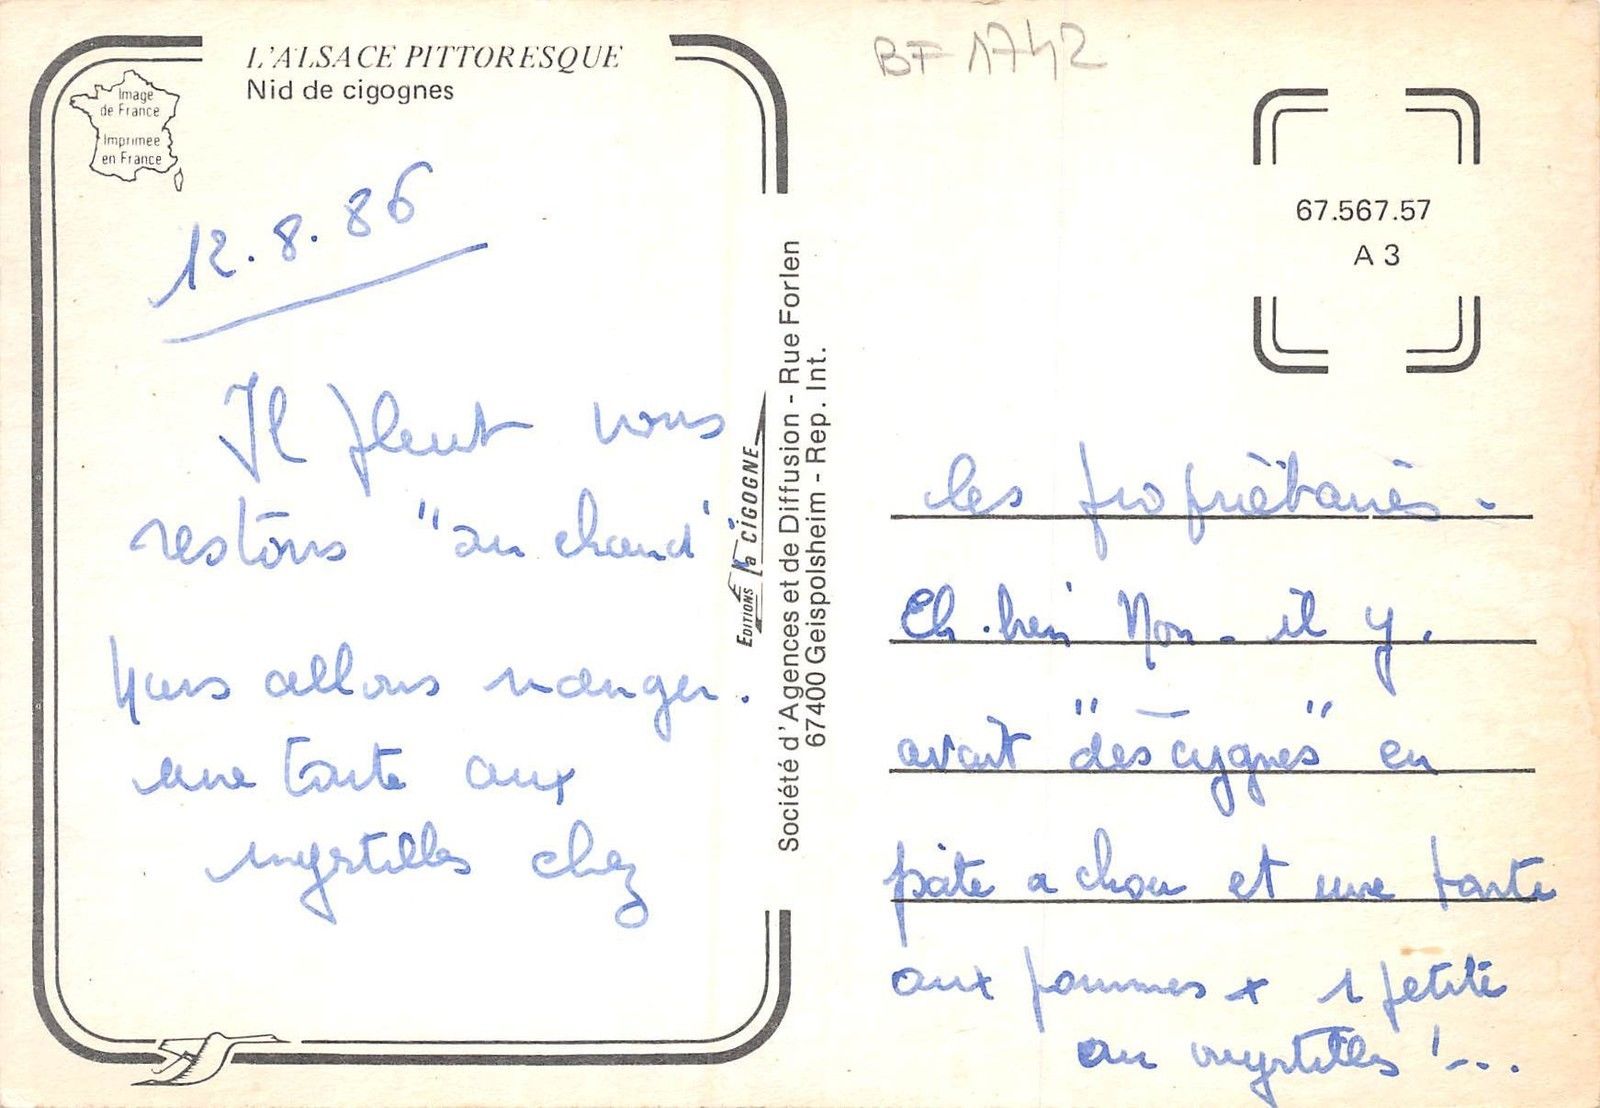 L'ALSACE PITTORESQUE
Nid de cigognes
Image
de France
Imprimée
en France
12.8.86
Il pleut nous
restons "au chaud"
Nous allons manger.
une tarte aux
myrtilles chez
EDITIONS la CIGOGNE
Société d'Agences et de Diffusion - Rue Forlen
67400 Geispolsheim - Rep. Int.
BF 1742
67.567.57
A 3
les propriètaires -
Eh. bien Non - il y.
avait "des cygnes" en
pâte a chou et une tarte
aux pommes + 1 petite
au myrtilles !...